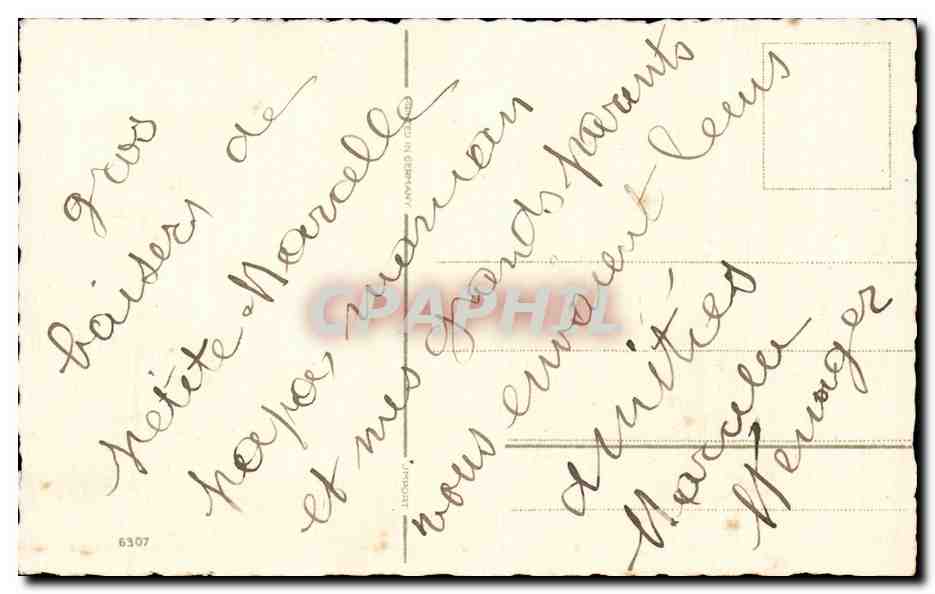 gros
baisers de
Petite Marcelle
papa, maman
et mes grands parents
vous envoient leurs
amitiés
Marcelle
PRINTED IN GERMANY
IMPORT
6307
CPAPHIL